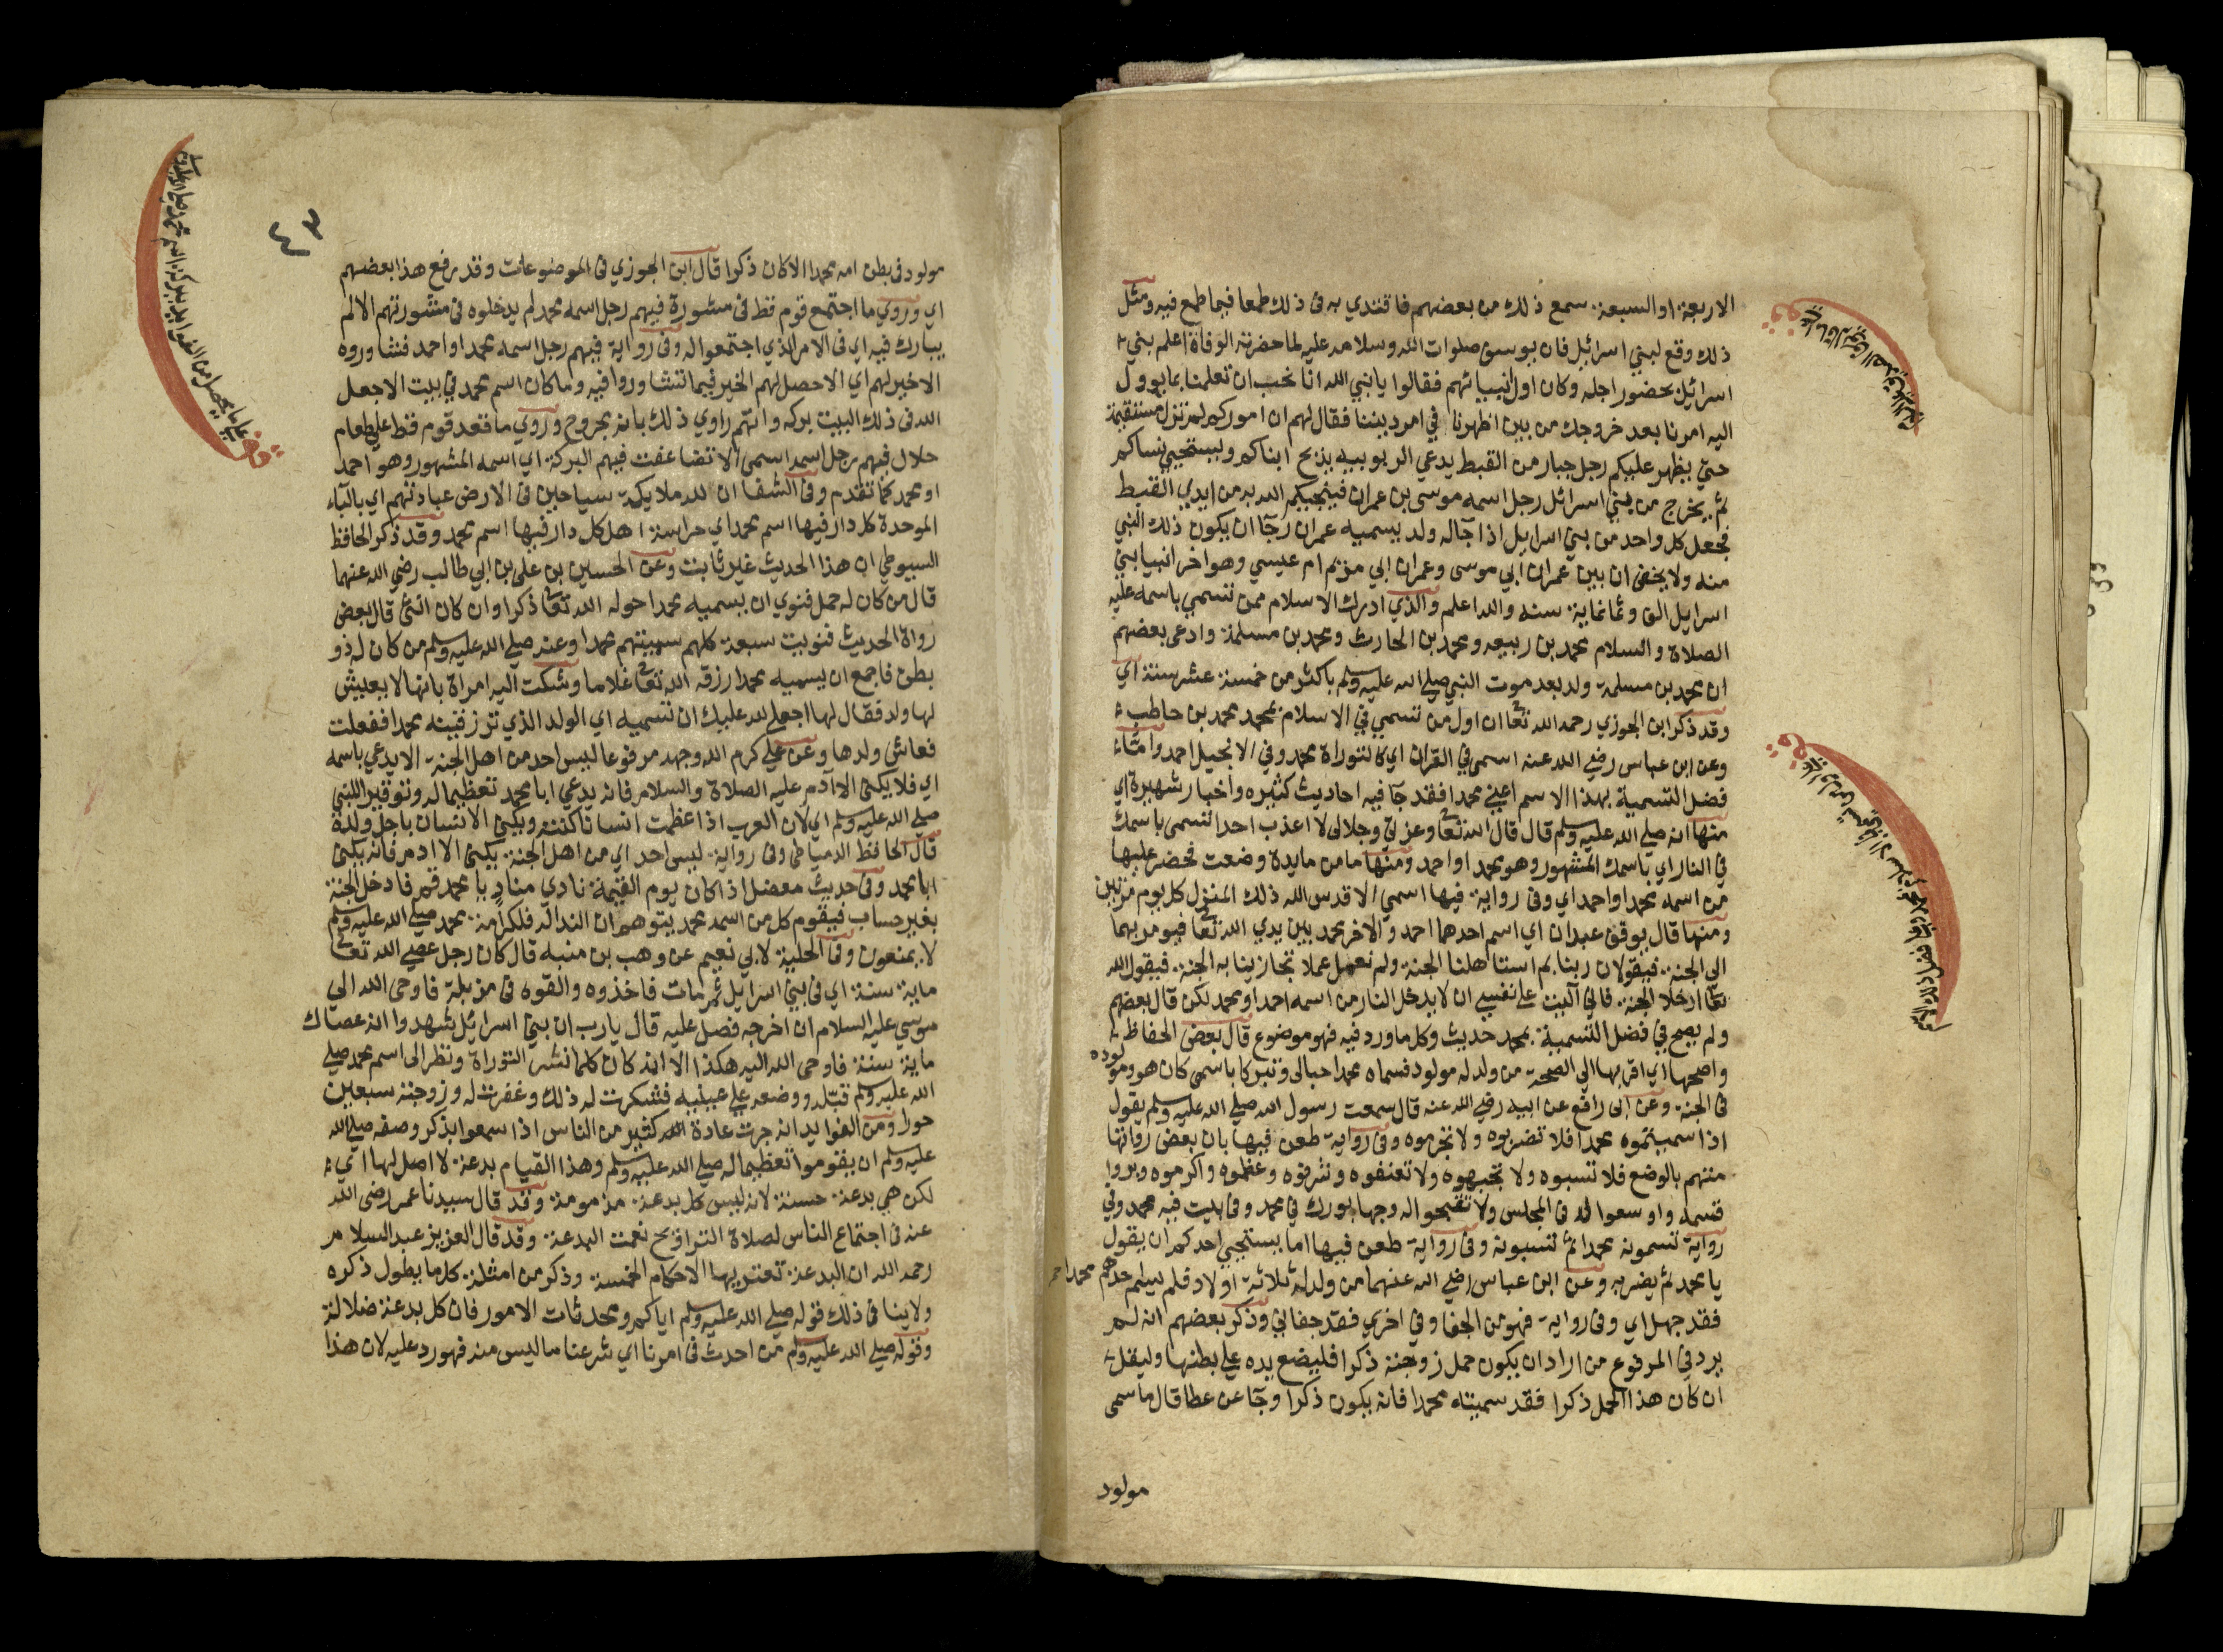 الاربعة او السبعة سمع ذلك من بعضهم فاقتدي به فى ذلك طمعا فيما طمع فيه ومثل
ذلك وقع لبني اسرائيل فان يوسف صلوات الله وسلامه عليه لما حضرته الوفاة اعلم بني
اسرائيل بحضور اجله وكان اول انبيائهم فقالوا يا نبي الله انا نحب ان تعلمنا بما يوول
اليه امرنا بعد خروجك من بين اظهرنا في امر ديننا فقال لهم ان اموركم لم تزل مستقيمة
حتي يظهر عليكم رجل جبار من القبط يدعي الربوبيه يذبح ابناكم ويستحيي نساكم
ثم يخرج من بني اسرائل رجل اسمه موسى بن عمران فينجيكم الله به من ايدي القبط
فجعل كل واحد من بني اسرايل اذا جآ له ولد يسميه عمران رجآ ان يكون ذلك النبي
منه ولا يخفى ان بين عمران ابي موسى وعمران ابي مريم ام عيسي وهو اخر انبيا بني
اسرايل الف وثمانماية سنه والله اعلم والذي ادرك الاسلام ممن تسمي باسمه عليه
الصلاة والسلام محمد بن ربيعه ومحمد بن الحارث ومحمد بن مسلمة وادعى بعضهم
ان محمد بن مسلمة ولد بعد موت النبي صلي الله عليه وسلم باكثر من خمسة عشر سنة اي
وقد ذكر ابن الجوزي رحمه الله تعا ان اول من تسمي في الاسلام بمحمد محمد بن حاطب
وعن ابن عباس رضي الله عنه اسمى في القران اي كالتوراة محمد وفي الانجيل احمد واما
فضل التسمية بهذا الاسم اعني محمدا فقد جآ فيه احاديث كثيره واخبار شهيرة اي
منها انه صلي الله عليه وسلم قال قال الله تعا وعزتي وجلالى لا اعذب احدا تسمى باسمك
في النار اي باسمك المشهور وهو محمد او احمد ومنها ما من مايدة وضعت فحضر عليها
من اسمه محمد او احمد اي وفى رواية فيها اسمي الا قدس الله ذلك المنزل كل يوم مرتين
ومنها قال يوقف عبدان اي اسم احدهما احمد والاخر محمد بين يدي الله تعا فيومر بهما
الى الجنة فيقولان ربنا بم استاهلنا الجنة ولم نعمل عملا تجازينا به الجنة فيقول الله
تعا ادخلا الجنة فاني آليت على نفسي ان لا يدخل النار من اسمه احمد او محمد لكن قال بعضهم
ولم يصح في فضل التسمية بمحمد حديث وكل ما ورد فيه فهو موضوع قال بعض الحفاظ
واصحها اي اقربها الي الصحة من ولد له مولود فسماه محمدا حبا لى وتبركا باسمى كان هو ومولوده
فى الجنة وعن ابى رافع عن ابيه رضي الله عنه قال سمعت رسول الله صلي الله عليه وسلم يقول
اذا سميتموه محمدا فلا تضربوه ولا تحرموه وفى رواية طعن فيها بان بعض رواتها
متهم بالوضع فلا تسبوه ولا تجبهوه ولا تعنفوه وشرفوه وعظموه واكرموه وبروا
قسمه واوسعوا له فى المجلس ولا تقبحوا له وجها بورك في محمد وفى بيت فيه محمد وفي
رواية تسمونه محمدا ثم تسبونه وفى رواية طعن فيها اما يستحيي احدكم ان يقول
يا محمد ثم يضربه وعن ابن عباس رضي الله عنهما من ولد له ثلاثة اولاد فلم يسلم حدهم محمدا
فقد جهل اي وفى رواية فهو من الجفا وفي اخري فقد جفاني وذكر بعضهم انه لم
يرد في المرفوع من اراد ان يكون حمل زوجته ذكرا فليضع يده علي بطنها وليقل
ان كان هذا الحمل ذكرا فقد سميته محمدا فانه يكون ذكرا وجآ عن عطا قال ما سمى
مولود
٤٣
مولود فى بطن امه محمدا الا كان ذكرا قال ابن الجوزي فى الموضوعات وقد رفع هذا بعضهم
اي وروي ما اجتمع قوم قط فى مشورة فيهم رجل اسمه محمد لم يدخلوه فى مشورتهم الا لم
يبارك فيه اي فى الامر الذي اجتمعوا له وفى رواية فيهم رجل اسمه محمد او احمد فشاوروه
الا خير لهم اي الا حصل لهم الخير فيما تشاوروا فيه وما كان اسم محمد في بيت الا جعل
الله فى ذلك البيت بركه واتهم راوي ذلك بانه مجروح وروي ما قعد قوم قط علي طعام
حلال فيهم رجل اسمه اسمى الا تضاعفت فيهم البركة اي اسمه المشهور وهو احمد
او محمد كما تقدم وفى الشفا ان لله ملايكة سياحين فى الارض عبادتهم اي بالبآء
الموحدة كل دار فيها اسم محمد اي حراسة اهل كل دار فيها اسم محمد وقد ذكر الحافظ
السيوطي ان هذا الحديث غير ثابت وعن الحسين بن على بن ابي طالب رضي الله عنهما
قال من كان له حمل فنوي ان يسميه محمدا حوله الله تعا ذكرا وان كان انثى قال بعض
رواة الحديث فنويت سبعة كلهم سميتهم محمدا وعنه صلي الله عليه وسلم من كان له ذو
بطن فاجمع ان يسميه محمدا رزقه الله تعا غلاما وشكت اليه امراة بانها لا يعيش
لها ولد فقال لها اجعلي لله عليك ان تسميه اي الولد الذي ترزقينه محمدا ففعلت
فعاش ولدها وعن علي كرم الله وجهه مرفوعا ليس احد من اهل الجنة الا يدعي باسمه
اي فلا يكنى الا آدم عليه الصلاة والسلام فانه يدعي ابا محمد تعظيما له وتوقيرا للنبي
صلي الله عليه وسلم اي لان العرب اذا عظمت انسانا كنته ويكنى الانسان باجل ولده
قال الحافظ الدمياطى وفى رواية ليس احد اي من اهل الجنة يكنى الا ادم فانه يكنى
ابا محمد وفى حديث معضل اذا كان يوم القيمة نادي مناد يا محمد قم فادخل الجنة
بغير حساب فيقوم كل من اسمه محمد يتوهم ان الندا له فلكرامة محمد صلي الله عليه وسلم
لا يمنعون وفى الحلية لابي نعيم عن وهب بن منبه قال كان رجل عصي الله تعا
ماية سنة اي فى بني اسرايل ثم مات فاخذوه والقوه فى مزبلة فاوحى الله الي
موسي عليه السلام ان اخرجه فصل عليه قال يارب ان بني اسرائيل شهدوا انه عصاك
ماية سنة فاوحى الله اليه هكذا الا انه كان كلما نشر التوراة ونظر الى اسم محمد صلي
الله عليه وسلم قبله ووضعه علي عينيه فشكرت له ذلك وغفرت له وزوجته سبعين
حورا ومن الفوايد انه جرت عادة كثير من الناس اذا سمعوا بذكر وصفه صلي الله
عليه وسلم ان يقوموا تعظيما له صلي الله عليه وسلم وهذا القيام بدعة لا اصل لها اي
لكن هي بدعة حسنة لانه ليس كل بدعة مذمومة وقد قال سيدنا عمر رضى الله
عنه فى اجتماع الناس لصلاة التراويح نعمت البدعة وقد قال العز بن عبد السلام
رحمه الله ان البدعة تعتريها الاحكام الخمسة وذكر من امثلة كل ما يطول ذكره
ولا ينا فى ذلك قوله صلي الله عليه وسلم اياكم ومحدثات الامور فان كل بدعة ضلالة
وقوله صلي الله عليه وسلم من احدث فى امرنا اي شرعنا ما ليس منه فهو رد عليه لان هذا